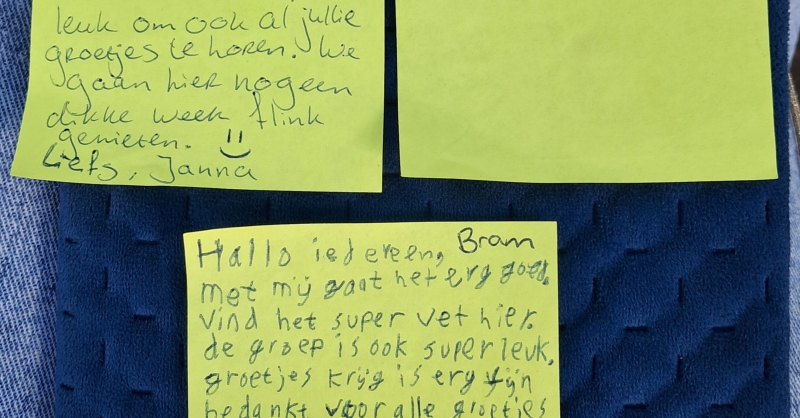 leuk om ook al jullie
groetjes te horen. We
gaan hier nog een
dikke week flink
genieten.
Liefs, Janna
Hallo iedereen, Bram
met mij gaat het erg goed.
vind het super vet hier.
de groep is ook super leuk,
groetjes krijg is erg fijn
bedankt voor alle groetjes